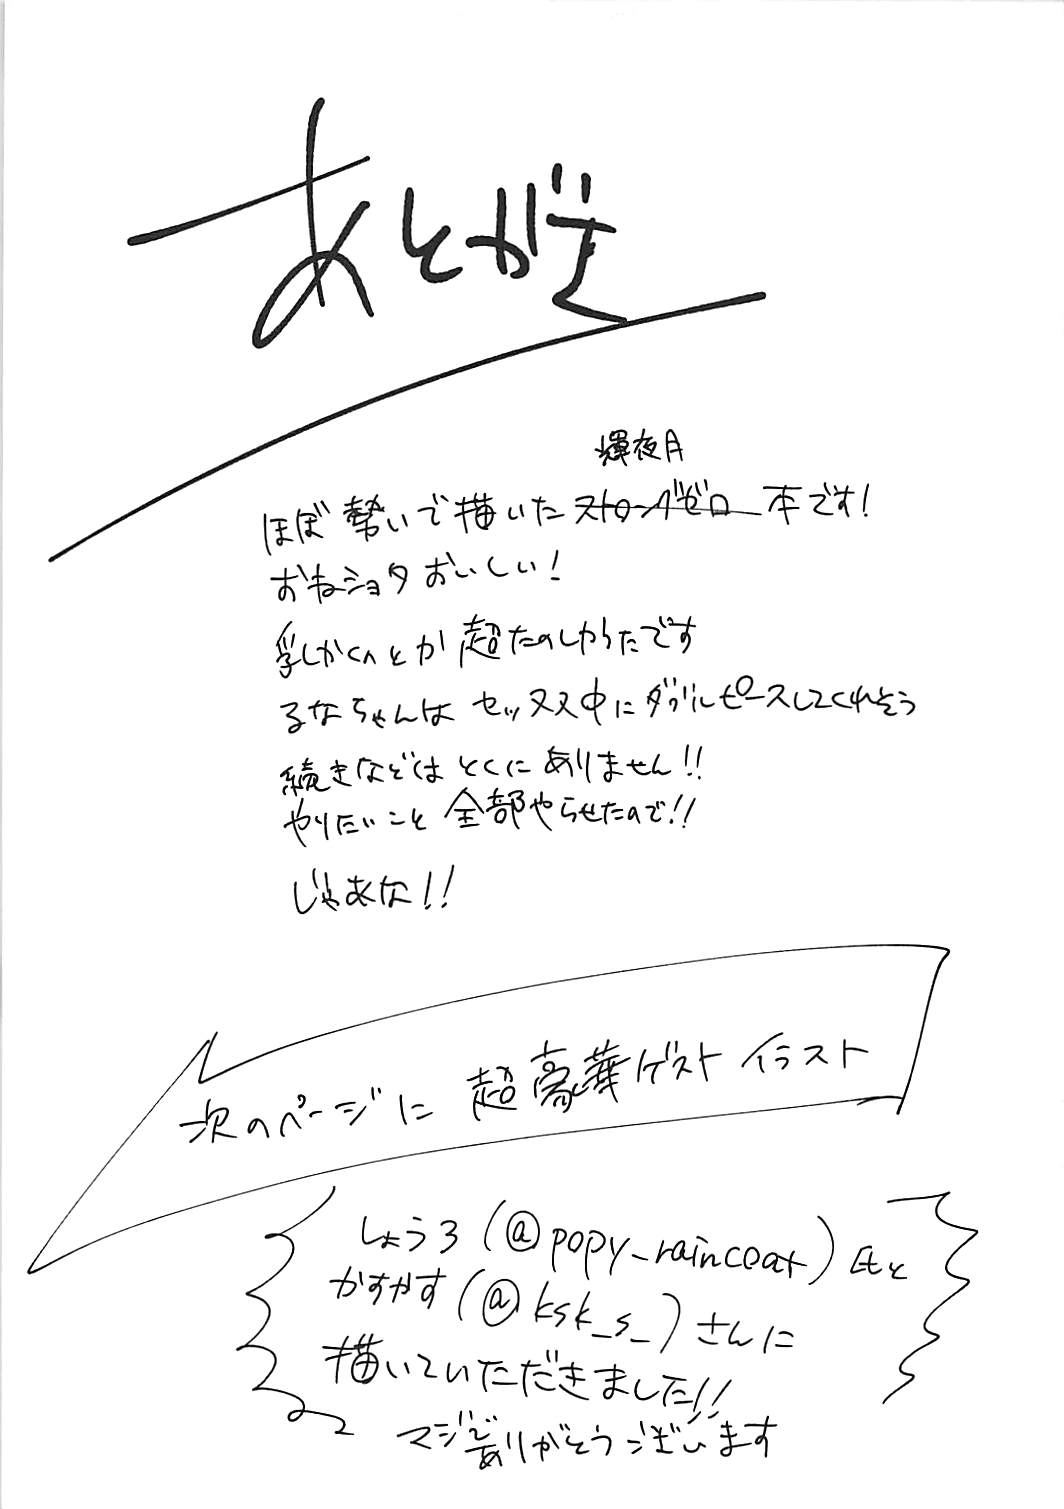 あとがき
輝夜月
ほぼ勢いで描いたストロングゼロ本です!
おねショタおいしい!
乳しかくんとか超たのしかったです
るなちゃんはセッヌヌ中にダブルピースしてくれそう
続きなどはとくにありません!!
やりたいこと全部やらせたので!!
じゃあな!!
次のページに超豪華ゲストイラスト
しょうろ(@popy_raincoat)氏と
かすかす(@ksk_s_)さんに
描いていただきました!!
マジでありがとうございます